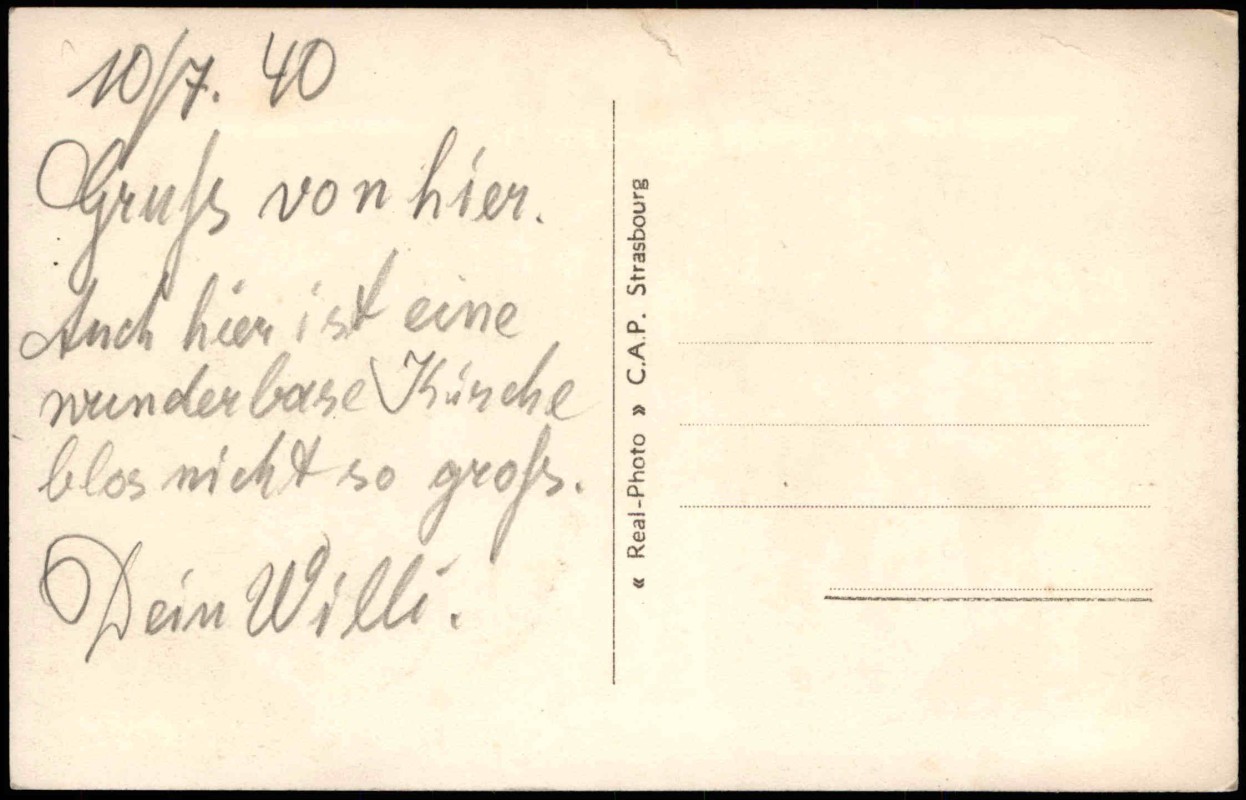 10/7. 40
Gruß von hier.
Auch hier ist eine
wunderbare Kirche
blos nicht so groß.
Dein Willi.
« Real-Photo » C.A.P. Strasbourg